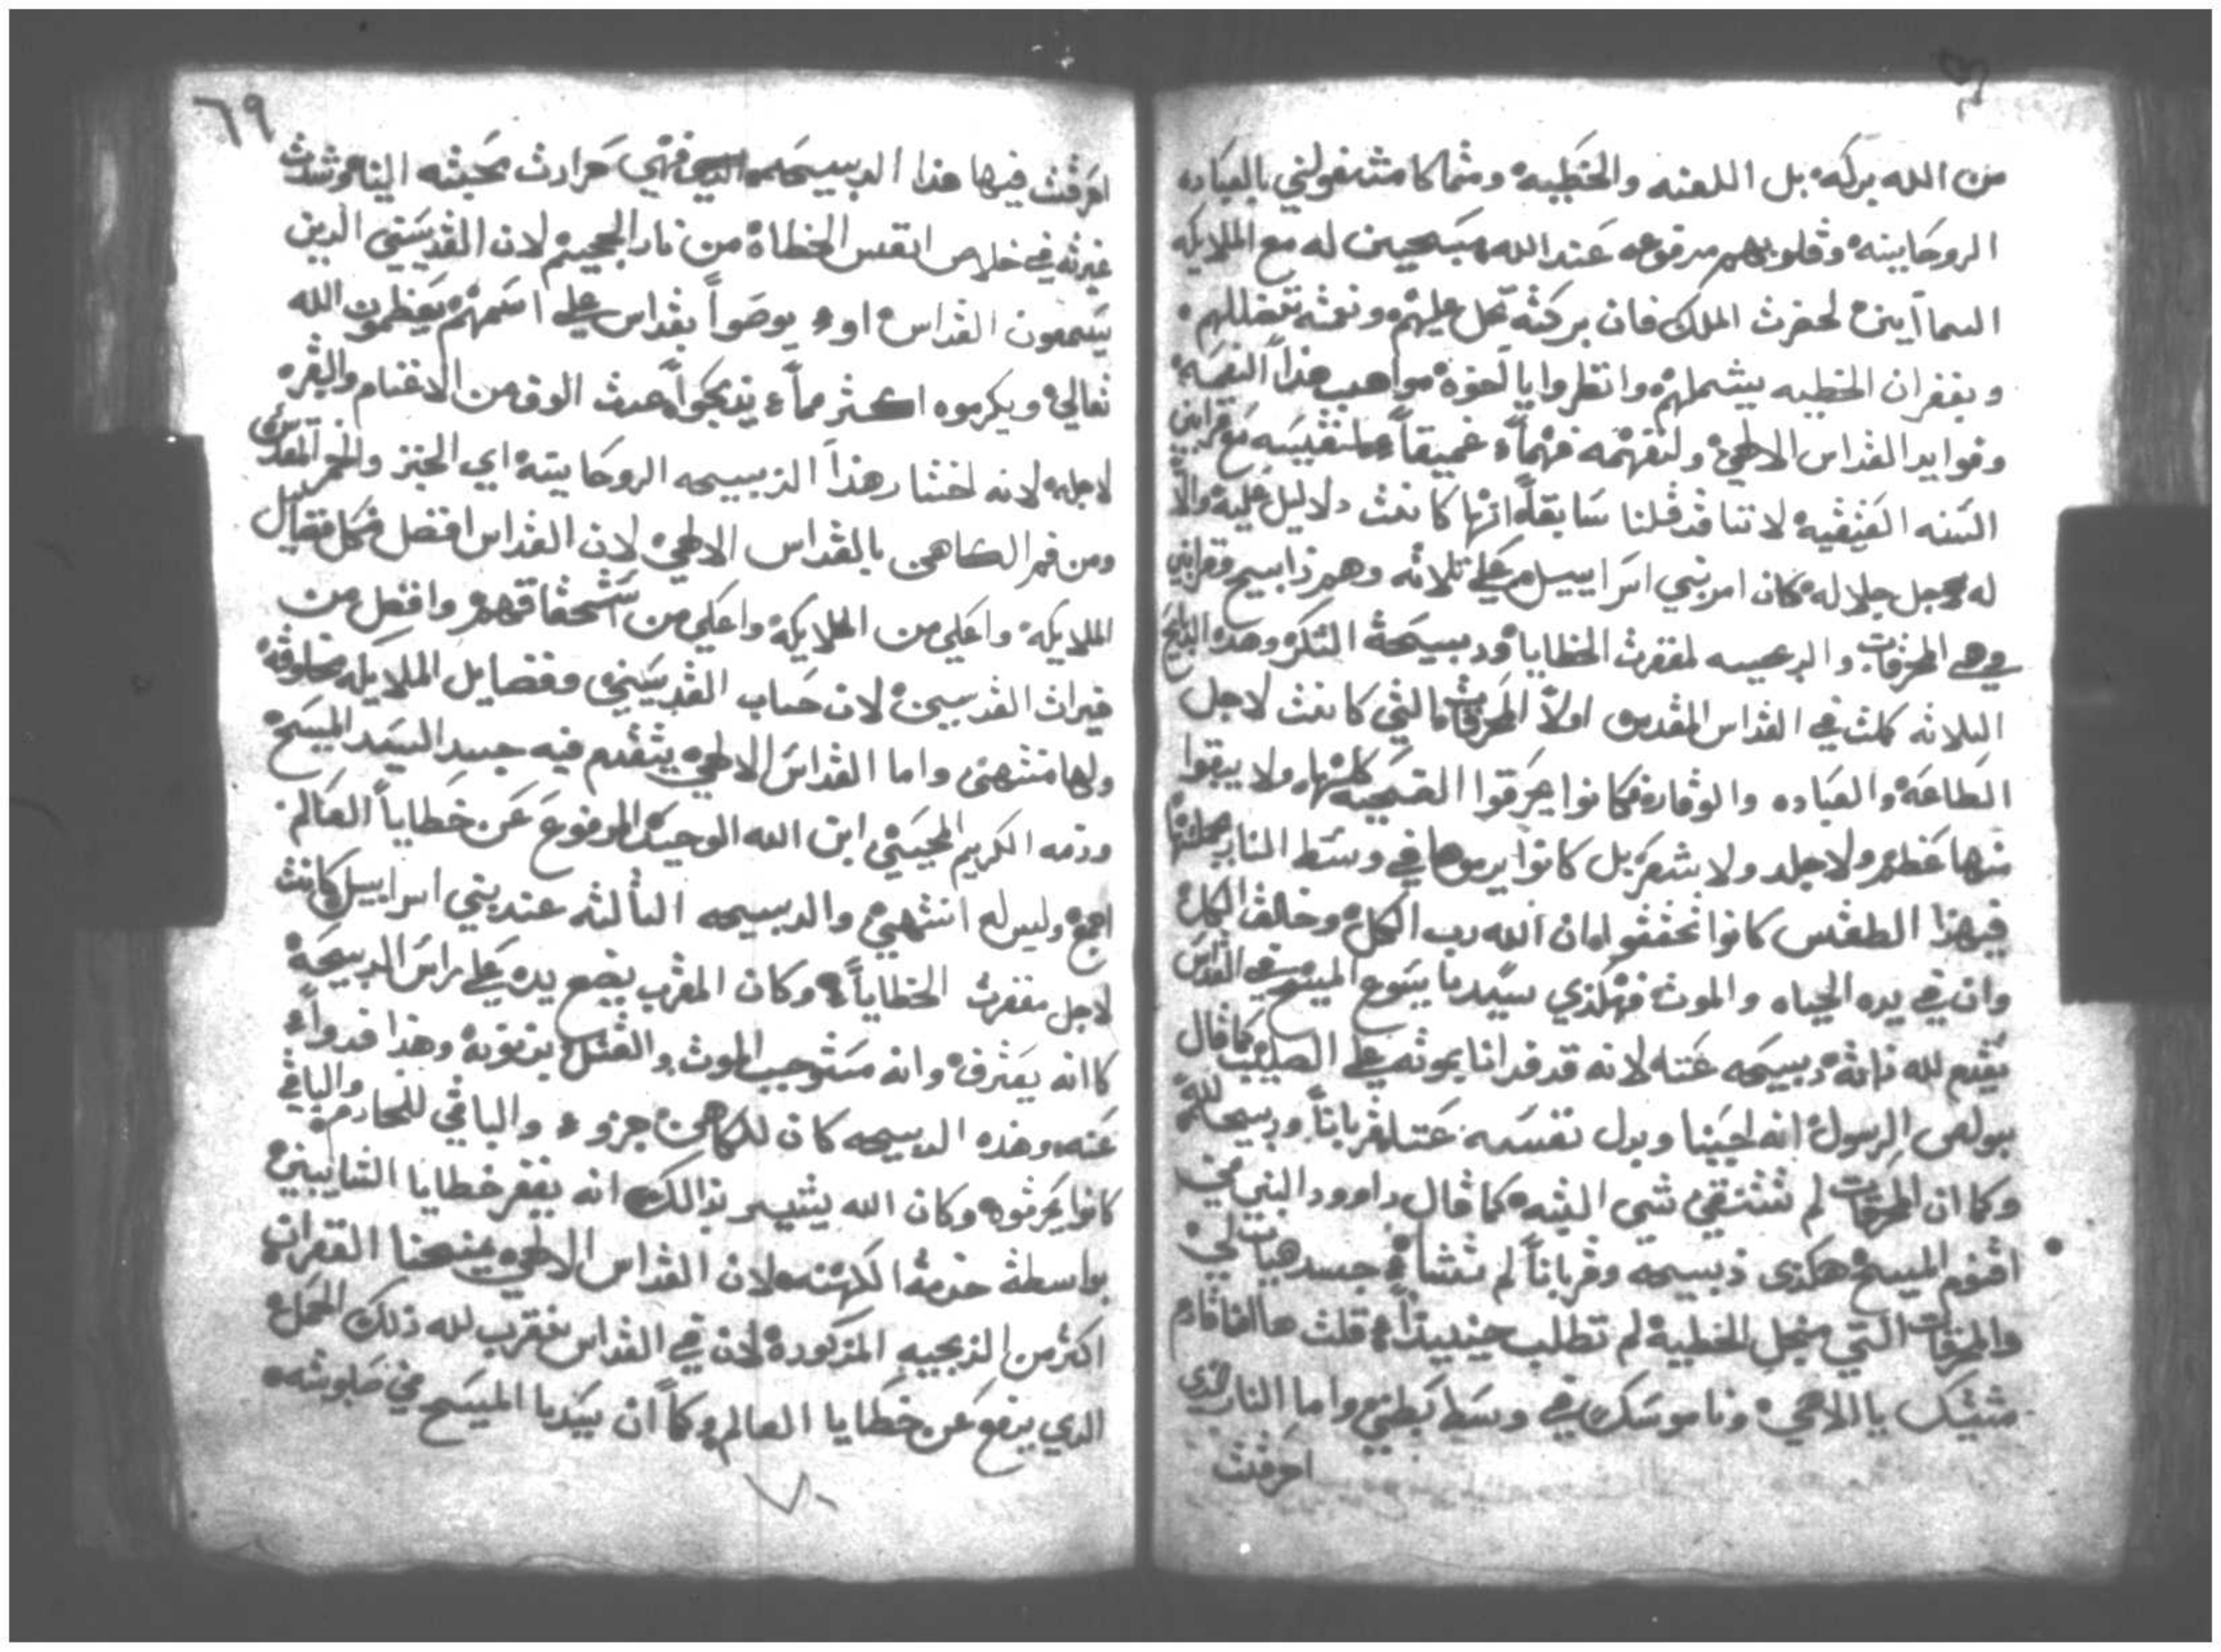 من الله بركه بل اللعنه والخطيه ومثما كا مثنغولني بالعباده
الروحانيه وقلوبهم مرفوعه عند الله مسبحين له مع الملايكه
السمآاين لحضرت الملك فان بركته تحل عليهم ونعمته تتفضللهم
وبغفران الخطيه يشملهم وانظروا يا اخوه مواهب هذا النعمه
وفوايد القداس الالاهي ولنفهمه فهماً عميقاً قرابين
السنه العتيقيه لاننا قد قلنا سابقاً انها كانت دلايل عليه والا
له لاجل جلاله كان امر بني اسراييل علي تلاته وهم دبايح وقرابين
وهي المحرقات والدبيحه لمغفرت الخطايا ودبيحة الشكر وهده الدبايح
التلاته كملت في القداس المقدس اولاً المحرقات التي كانت لاجل
الطاعه والعباده والوقاره فكانوا يحرقوا الضحيه كلها ولا يبقوا
منها عضم ولا جلد ولا شعر بل كانوا يرموها في وسط النار
فبهذا الطقس كانوا يحققوا بان الله رب الكل وخالق الكل
وان في يده الحياه والموت فهكذي سيدنا يسوع المسيح في القداس
يتقدم لله ذاته دبيحه عنا لانه قد فدانا بموته علي الصليب كما قال
بولص الرسول انه احبنا وبدل نفسه عنا قرباناً ودبيحه لله
وكما ان المحرقات لم تشتقي شي البته كما قال داوود النبي في
اقنوم المسيح هكذي ذبيحه وقرباناً لم تشا جسد هيات لي
والمحرقات التي من اجل الخطيه لم تطلب حينيداً قلت ها انا قادم
مشيتك يا الاهي وناموسك في وسط بطني واما النار الذي
احرقت
٦٩
احرقت فيها هذا الدبيحه فهي حرارت محبته الينا وشدت
غيرته في خلاص انفس الخطاه من نار الجحيم لان القديسين الدين
يسمعون القداس او يوصوا بقداس علي اسمهم يعظمون الله
تعالي ويكرموه اكثر مما يذبحوا عدت الوف من الاغنام والبقر
لاجله لانه اختار هذا الذبيحه الروحانيه اي الخبز والخمر المقدس
ومن فم الكاهن بالقداس الالاهي لان القداس افضل من كل فضايل
الملايكه واعلي من الملايكه واعلي من استحقاقهم وافضل من
خيرات القديسين لان حساب القديسين وفضايل الملايكه مخلوقه
ولها منتهي واما القداس الالاهي يتقدم فيه جسد السيد المسيح
ودمه الكريم المحيي ابن الله الوحيد المرفوع عن خطايا العالم
اجمع وليس له انتهي والدبيحه التالته عند بني اسراييل كانت
لاجل مغفرت الخطايا وكان المقرب يضع يده علي راس الدبيحه
كانه يعترف وانه مستوجب الموت والقتل بدنوبه وهذا فدواً
عنه وهذه الدبيحه كان للكاهن جزو والباقي للخادم والباقي
كانوا يحرقوه وكان الله يتيسر بذالك انه يغفر خطايا التايبين
بواسطة خدمة الكهنه لان القداس الالاهي يمنحنا الغفران
اكثر من الذبيحه المزكوره لان في القداس نقرب لله ذلك الحمل
الدي يرفع عن خطايا العالم وكما ان سيدنا المسيح في صلوبته
٧٠